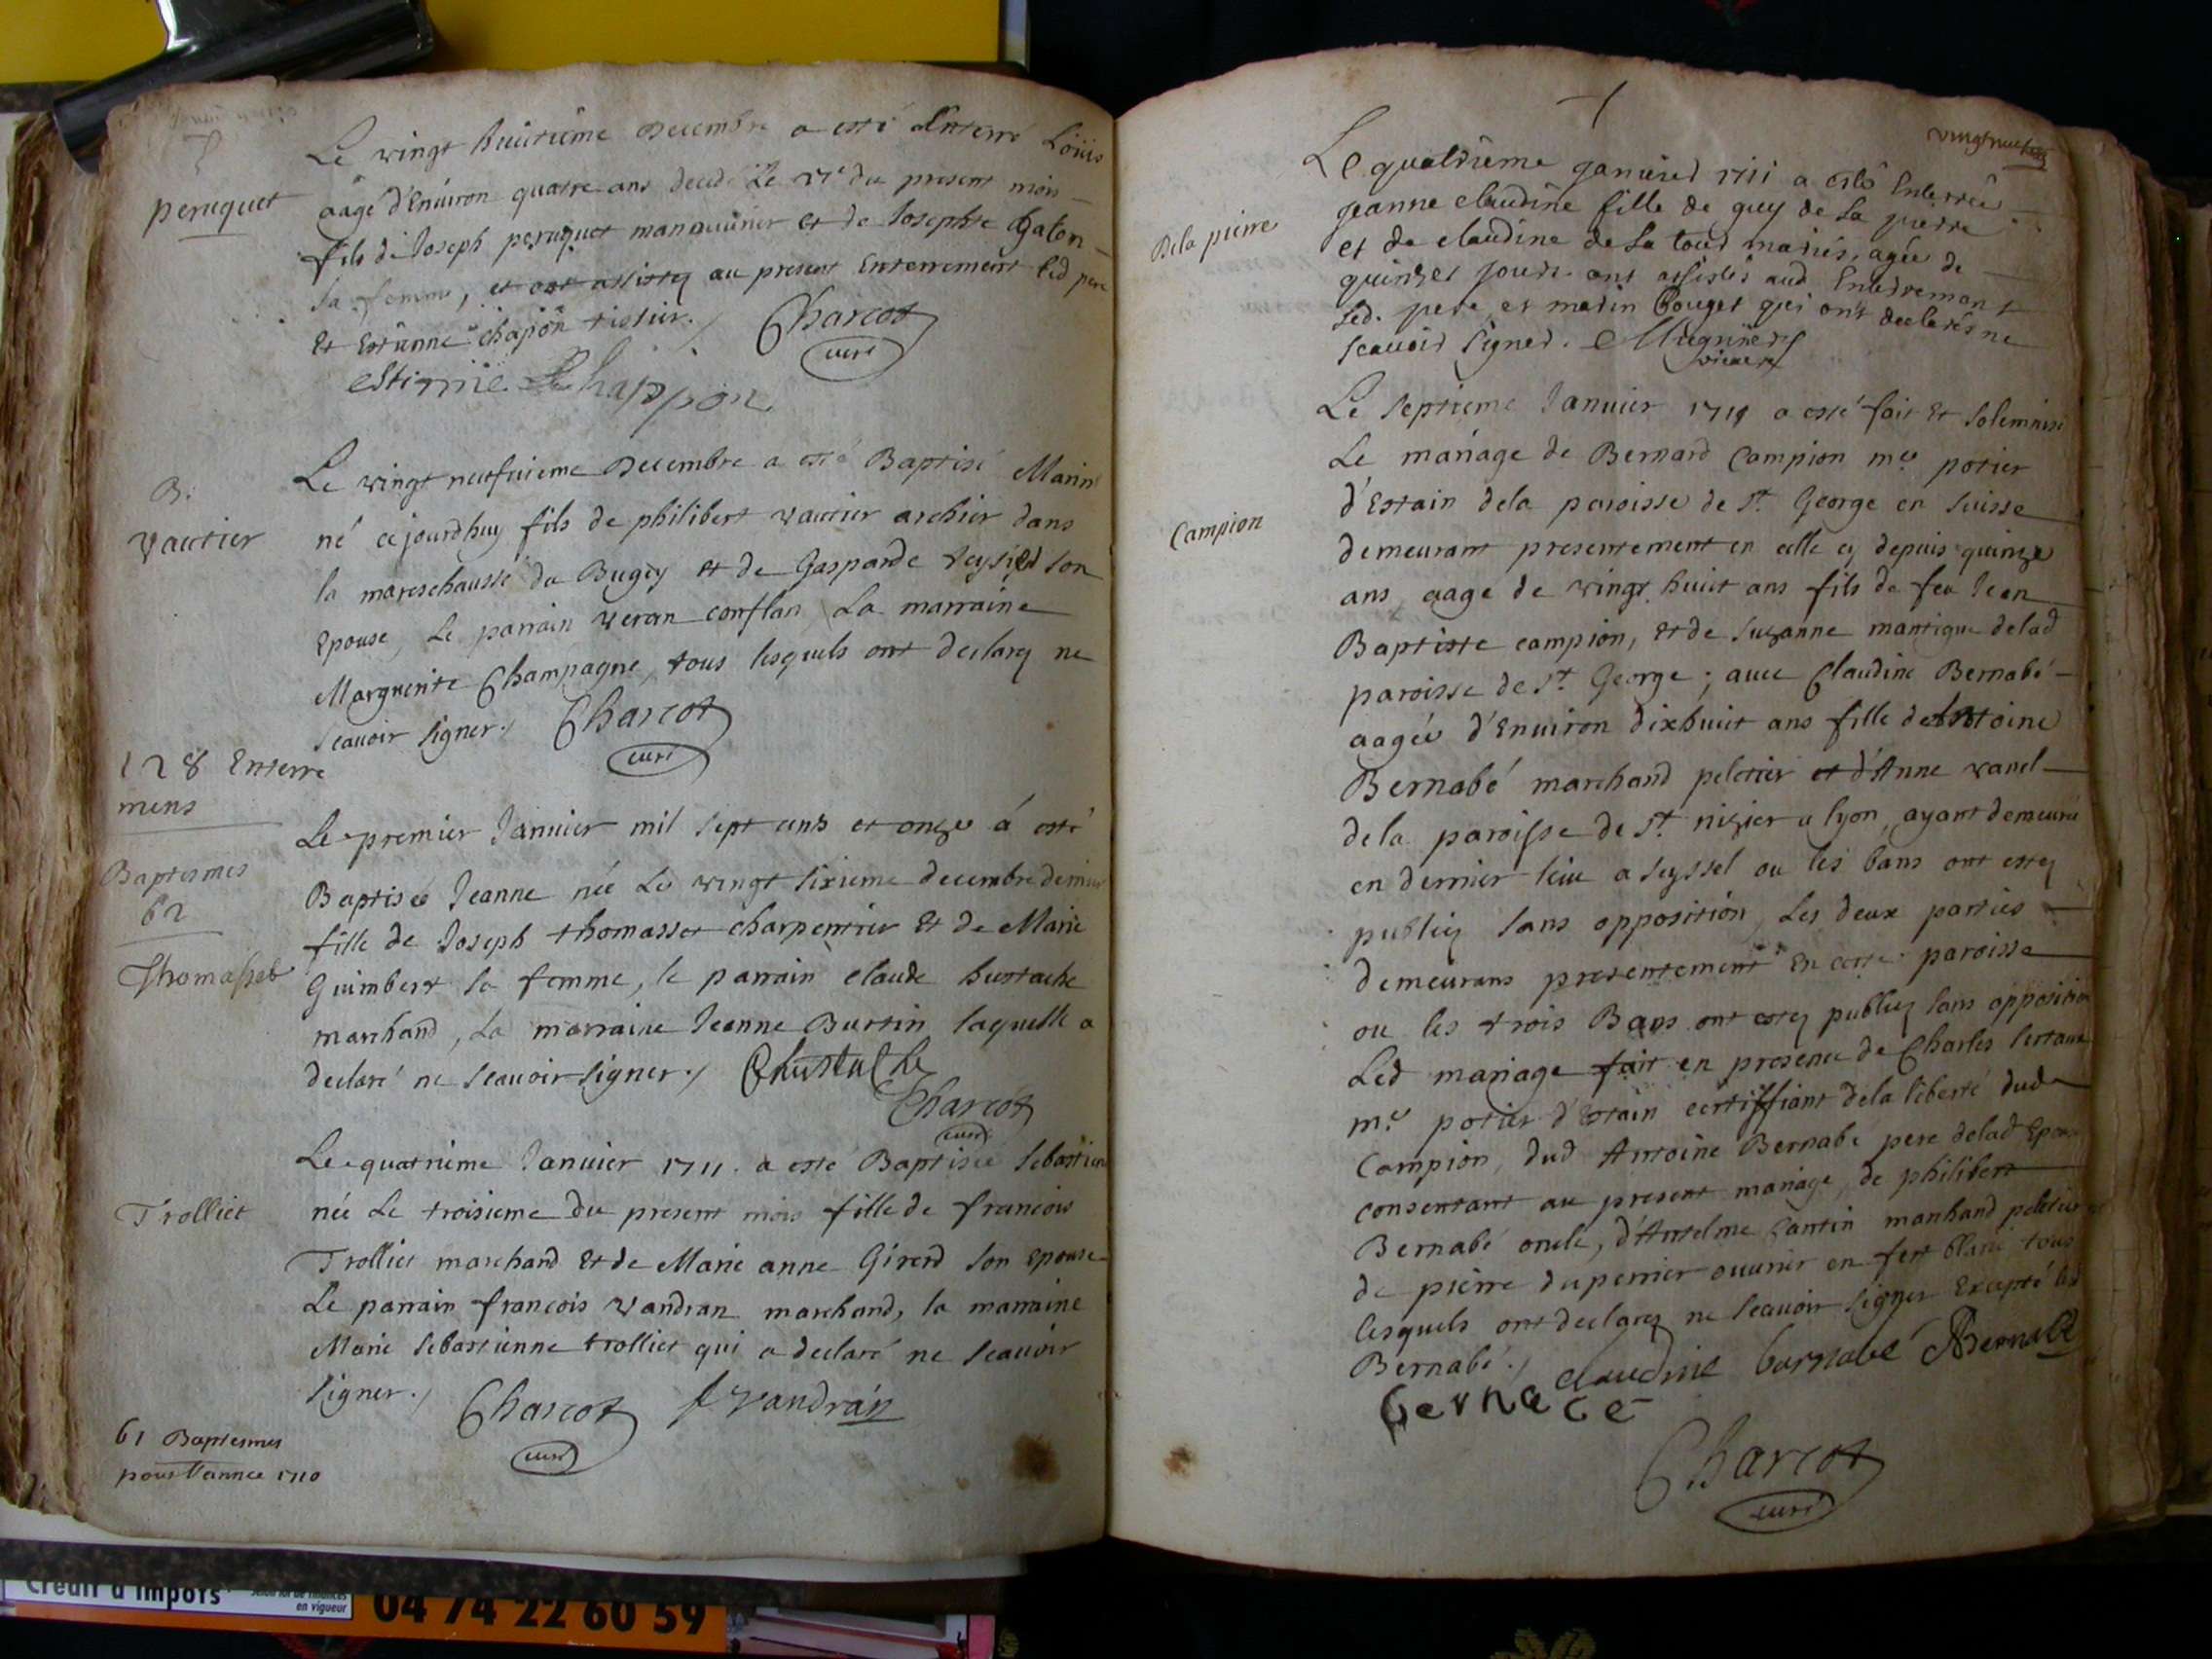 peruquet
Le vingt huitiéme Decembre a esté Enterré Loüis
aagé d'Enuiron quatre ans decedé Le du present mois
fils de Joseph peruquet manouurier et de Josephte
sa femme, et ont assistez au present Enterrement led pere
Et Estienne chapon tissier./ Charcot
curé
estienne Chappon
B.
vautier
Le vingt neufuieme Decembre a esté Baptisé Marin
né cejourdhuy fils de philibert vautier archier dans
la mareschaussé du Bugey et de Gasparde son
Epouse, Le parrain veran conflan La marraine
Marguerite Champagne, tous lesquels ont declarez ne
scauoir signer./ Charcot
curé
128 Enterre
mens
Baptesmes
62
Thomasset
Le premier Januier mil sept cents et onze á esté
Baptisée Jeanne née Le vingt sixieme decembre dernier
fille de Joseph thomasset charpentier Et de Marie
Guimbert sa femme, le parrain claude hustache
marchand, La marraine Jeanne Burtin laquelle a
declaré ne scauoir signer./ Chustache
Charcot
curé
Trolliet
Le quatrieme Januier 1711. a esté Baptisée Sebastienne
née Le troisieme Du present mois fille de francois
Trolliet marchand Et de Marie anne Girerd son Epouse
Le parrain francois vandran marchand, la marraine
Marie Sebastienne trolliet qui a declaré ne scauoir
signer./ Charcot f vandran
curé
61 Baptesmes
pour l'annee 1710
vingt
De la pierre
Le quatriéme januier 1711 a esté Enterrée
jeanne claudine fille de guy de la pierre
et de claudine de la tour mariés, agée de
quinze jours ont assistés aud Enterrement
led. pere, et Bouget qui ont declarés ne
scauoir signer.
vicaire
Campion
Le septieme Januier 1711 a esté fait Et solemnisé
Le mariage de Bernard Campion mre potier
d'Estain dela paroisse de St. George en suisse
demeurant presentement en celle cy depuis quinze
ans aagé de vingt huit ans fils de feu Jean
Baptiste campion, et de Suzanne mantique delad
paroisse de St. George; auec Claudine Bernabé
aagée d'Enuiron dixhuit ans fille de Antoine
Bernabé marchand peletier et d'Anne vanel
de la paroisse de St. nizier a lyon, ayant demeuré
en dernier lieu a seyssel ou les bans ont estez
publiez sans opposition, Les deux parties
demeurans presentement En cette paroisse
ou les trois Bans ont estez publiez sans opposition
Led mariage fait en presence de Charles
mre potier d'Estain certiffiant dela liberté dud
Campion, dud Antoine Bernabé pere delad Epouse
consentant au present mariage, de philibert
Bernabé oncle, d'Antelme Cantin marchand peletier et
de pierre duperrier ouurier en fert blanc tous
lesquels ont declarez ne scauoir signer Excepté les
Bernabé./ claudine barnabé Bernabé
bernabé
Charcot
curé
Credit d'impots
en vigueur
04 74 22 60 59